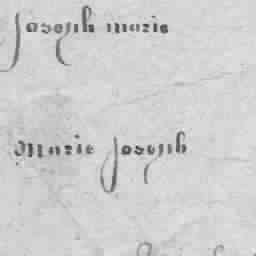 joseph marie
Marie joseph